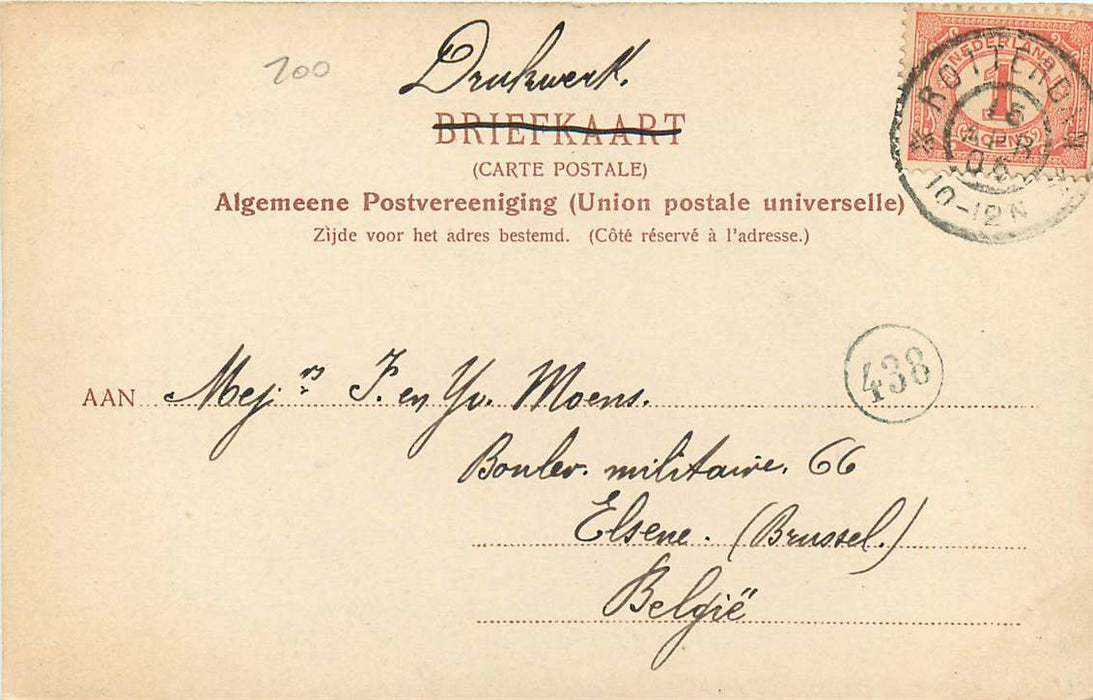 200
Drukwerk.
BRIEFKAART
(CARTE POSTALE)
Algemeene Postvereeniging (Union postale universelle)
Zijde voor het adres bestemd. (Côté réservé à l'adresse.)
NEDERLAND
1
CENT
ROTTERDAM
10-12N
438
AAN Mej.rs J. en Yv. Moens.
Boulev. militaire. 66
Elsene. (Brussel.)
België